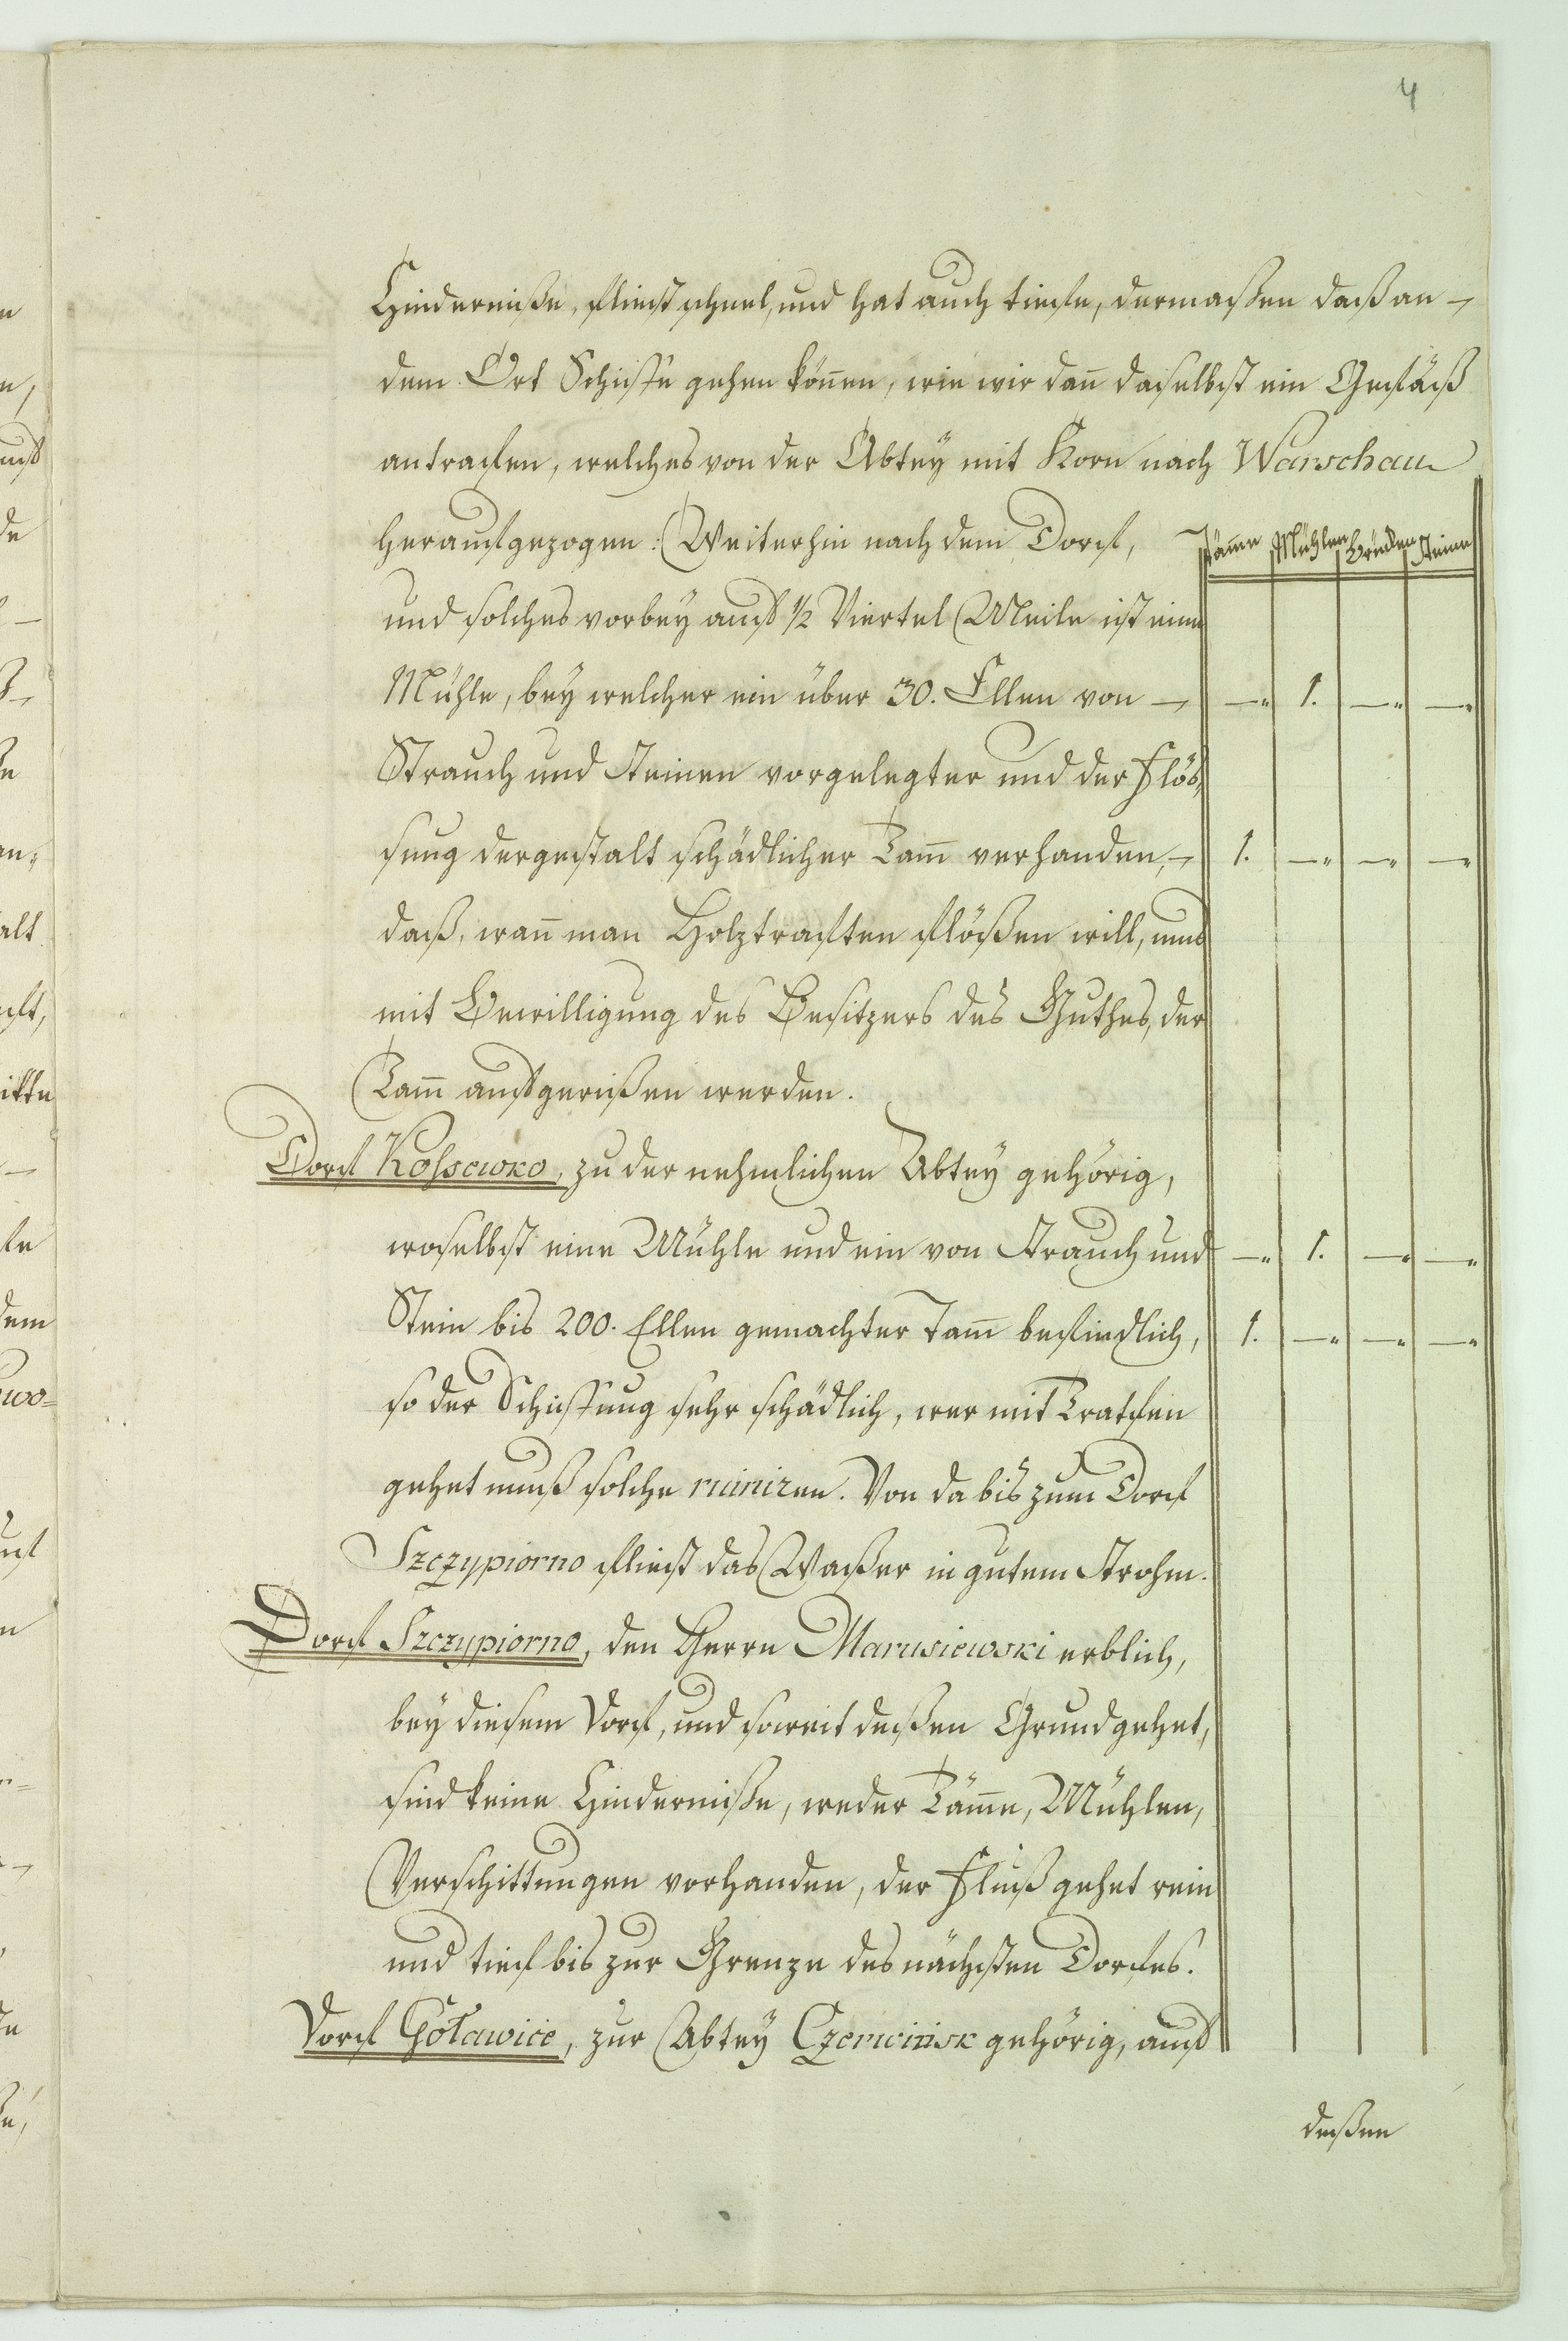 4
Hinderniße, fliest schnel, und hat auch tiefe, dermaßen daß an
dem Ort Schiffe gehen könen, wie wir dan daselbst ein Gefäß
antrafen, welches von der Abtey mit Korn nach Warschau
heraufgezogen: Weiterhin nach dem Dorf,
Täme Mühlen Brücken Steine
und solches vorbey auf ½ Viertel Meile ist eine
Mühle, bey welcher ein über 30. Ellen von — „ 1. — „ — „
Strauch und Steinen vorgelegter und der Flös,
sung dergestalt schädlicher Tam verhanden, 1. — „ — „ — „
daß, wan man Holztraften flößen will, mus
mit Bewilligung des Besitzers des Guthes, der
Tam aufgerißen werden.
Dorf Kossewko, zu der nehmlichen Abtey gehörig,
woselbst eine Mühle und ein von Strauch und — „ 1. — „ — „
Stein bis 200. Ellen gemachter Tam befindlich, 1. — „ — „ — „
so der Schiffung sehr schädlich, wer mit Tratfen
gehet muß solche ruiniren. Von da bis zum Dorf
Szczypiorno fliest das Waßer in gutem Strohm.
Dorf Szczypiorno, den Herrn Marusiewski erblich,
bey diesem Dorf, und soweit deßen Grund gehet,
sind keine Hinderniße, weder Täme, Mühlen,
Verschittungen vorhanden, der Fluß gehet rein
und tief bis zur Grenze des nächsten Dorfes.
Dorf Goławice, zur Abtey Czerwińsk gehörig, auf
deßen